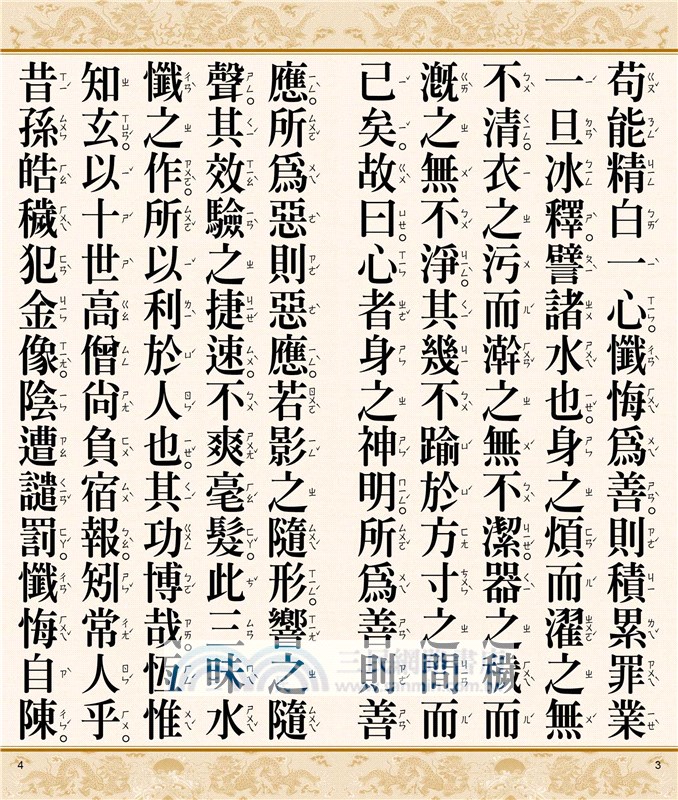 苟能精白一心。懺悔爲善。則積累罪業
一旦冰釋。譬諸水也。身之煩而濯之無
不清。衣之污而澣之無不潔。器之穢而
漑之無不淨。其幾不踰於方寸之間而
已矣。故曰。心者身之神明。所爲善則善
3
應。所爲惡則惡應。若影之隨形。響之隨
聲。其效驗之捷速。不爽毫髮。此三昧水
懺之作。所以利於人也。其功博哉。恆惟
知玄。以十世高僧。尚負宿報。矧常人乎。
昔孫皓穢犯金像。陰遭譴罰。懺悔自陳。
4